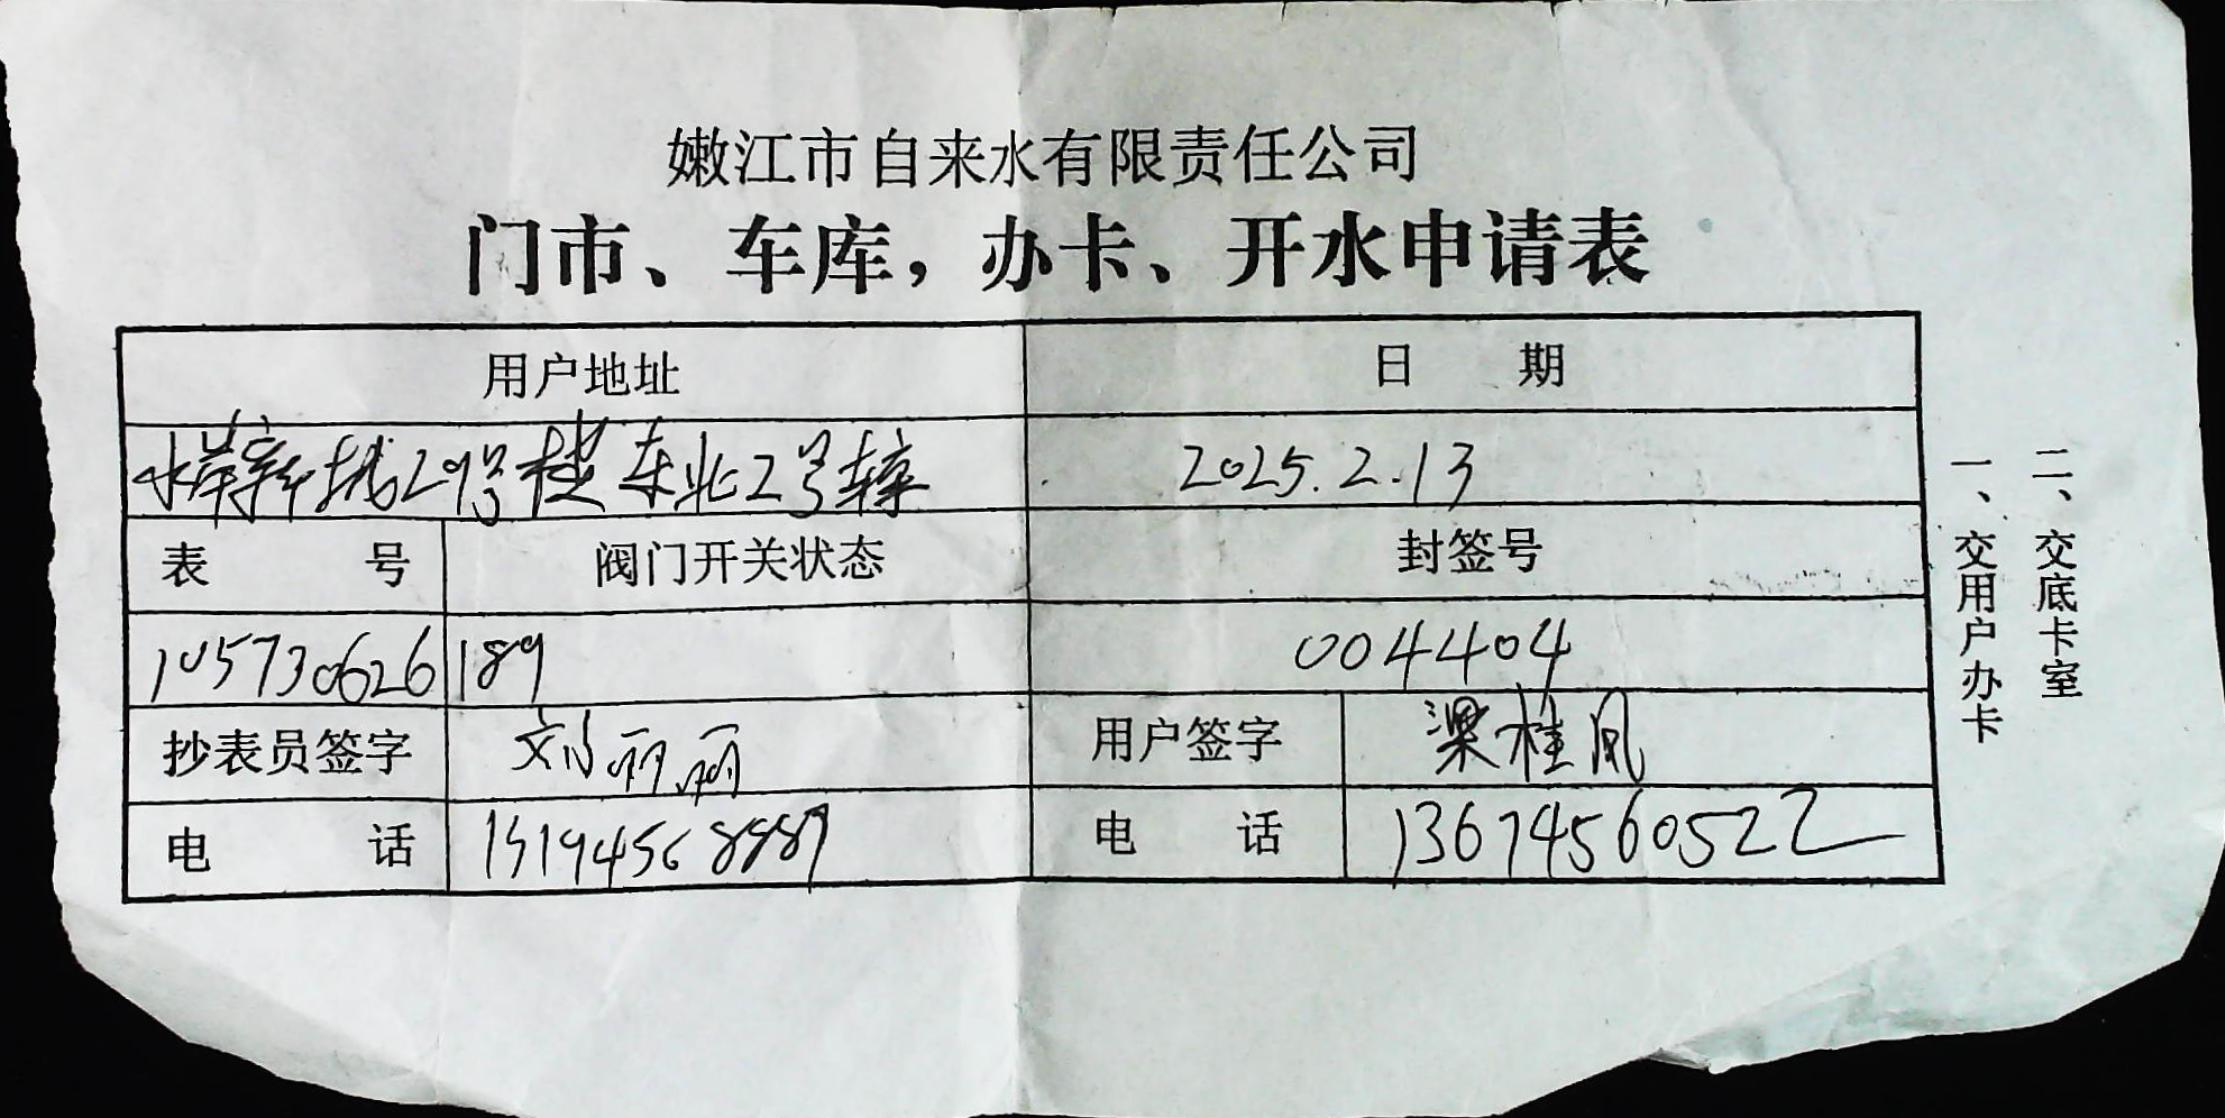 嫩江市自来水有限责任公司
门市、车库，办卡、开水申请表
用户地址 日 期
水岸新城29号楼东北2号车库 2025.2.13
表 号 阀门开关状态 封签号
105730626 189 004404
抄表员签字 刘丽丽 用户签字 梁桂凤
电 话 15194568889 电 话 13674560522
一、交用户办卡
二、交底卡室